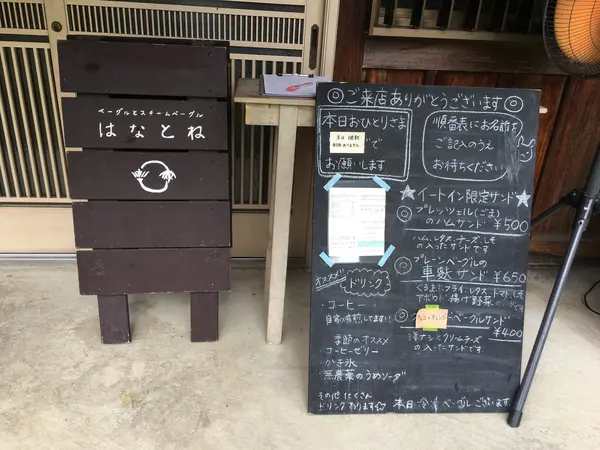 ベーグルとスチームベーグル
はなとね
◎ご来店ありがとうございます◎
本日おひとりさま
で
お願いします
順番表にお名前を
ご記入のうえ
お待ちください
☆イートイン限定サンド☆
◎プレッツェル(ごま)
のハムサンド ¥500
ハム、レタス、チーズ、しそ
の入ったサンドです
◎プレーンベーグルの
車麩サンド ¥650
くるまふフライ、レタス、トマト、しそ
アボカド、揚げ野菜
ベーグルサンド
¥400
洋ナシとクリームチーズ
の入ったサンドです
オススメ
ドリンク
・コーヒー
自家焙煎してます!!
季節のオススメ
・コーヒーゼリー
・かき氷
・無農薬のうめソーダ
その他たくさん
ドリンクあります☆
本日冷凍ベーグルございます。